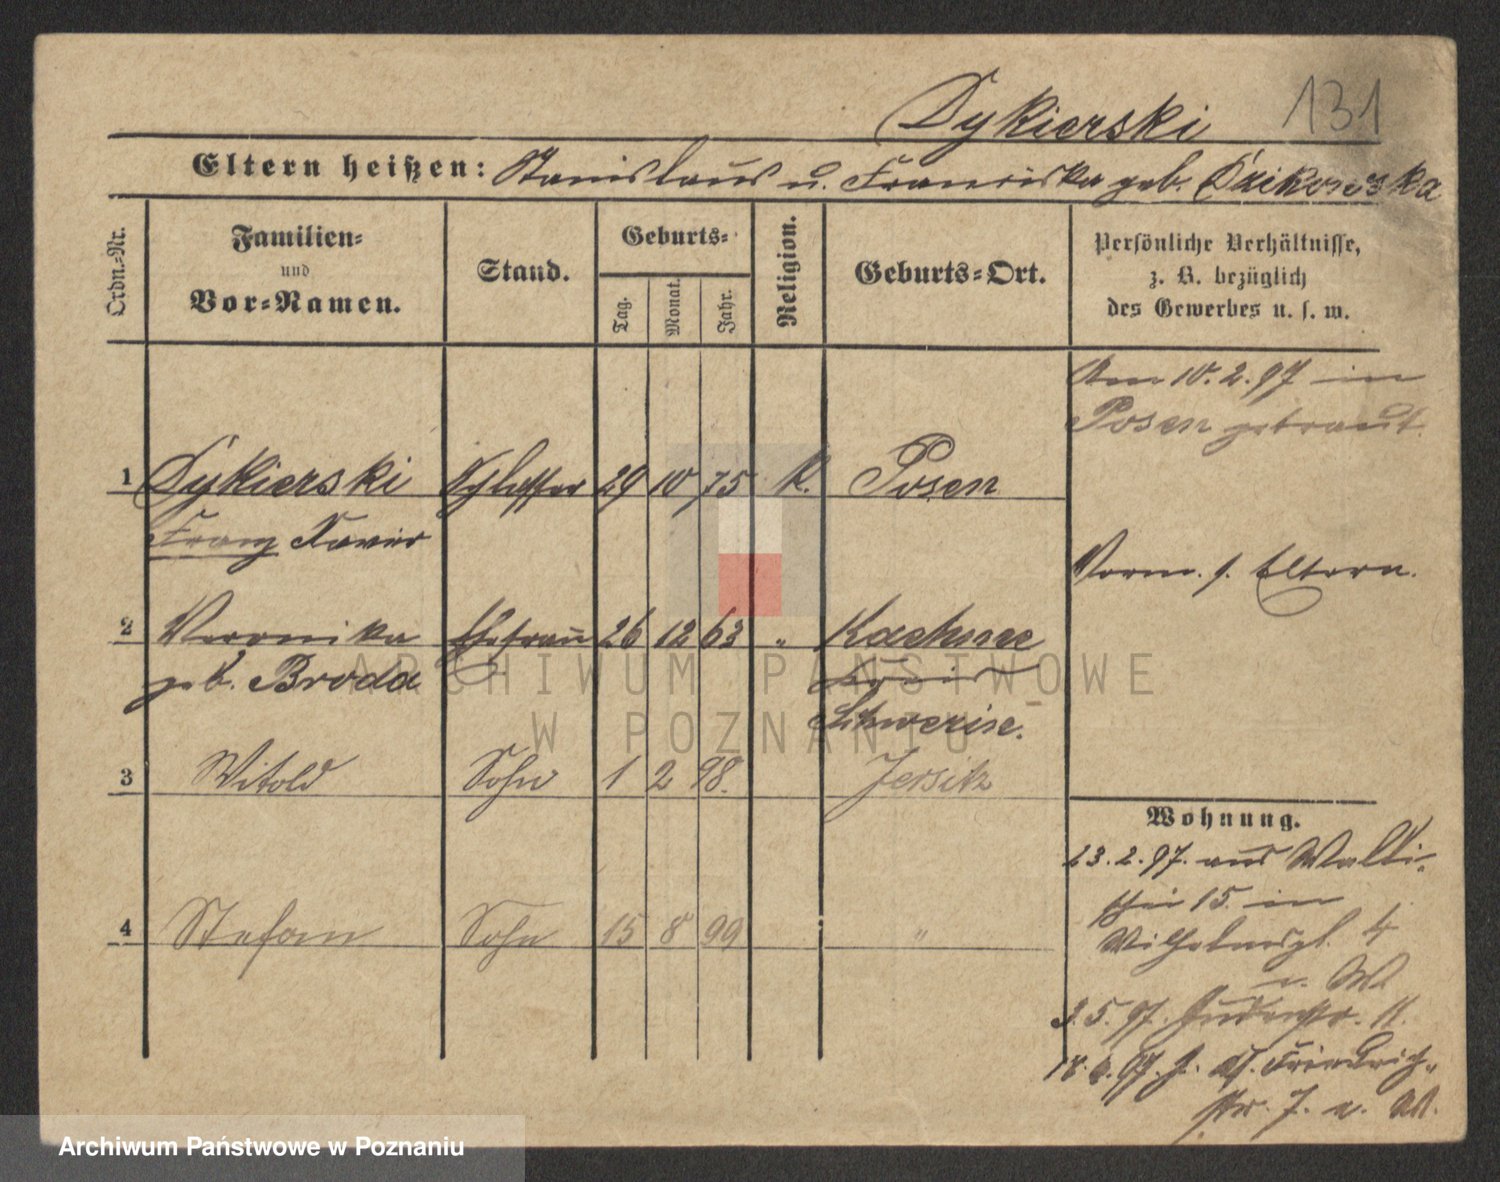 Dykierski 131
Eltern heißen: Stanislaus u. Franciska geb. Dzikowska
Ordn.-Nr.
Familien-
und
Vor-Namen.
Stand.
Geburts-
Tag.
Monat.
Jahr.
Religion.
Geburts-Ort.
Persönliche Verhältnisse,
z. B. bezüglich
des Gewerbes u. s. w.
Am 10.2.97 in
Posen getraut.
1 Dykierski Schlosser 29 10 75 K. Posen
Franz Xaver
Vorm. s. Eltern.
2 Veronika Ehefrau 26 12 63 "
geb. Broda
Kreis
3 Witold Sohn 1 2 98. Jersitz
4 Stefan Sohn 15 8 99 "
Wohnung.
23.2.97. aus Walli-
schei 15. in
Wilhelmspl. 4
n. W
3.5.97. Judenstr. 11.
18.6.97. J. Friedrich-
str. 7. n. W.
ARCHIWUM PAŃSTWOWE
W POZNANIU
Archiwum Państwowe w Poznaniu